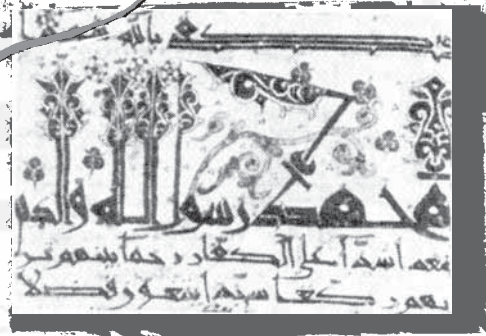 بالله شهيدا
محمد رسول الله والذين
معه اشدا على الكفار رحما بينهم ترا
هم ركعا سجدا يبتغون فضلا